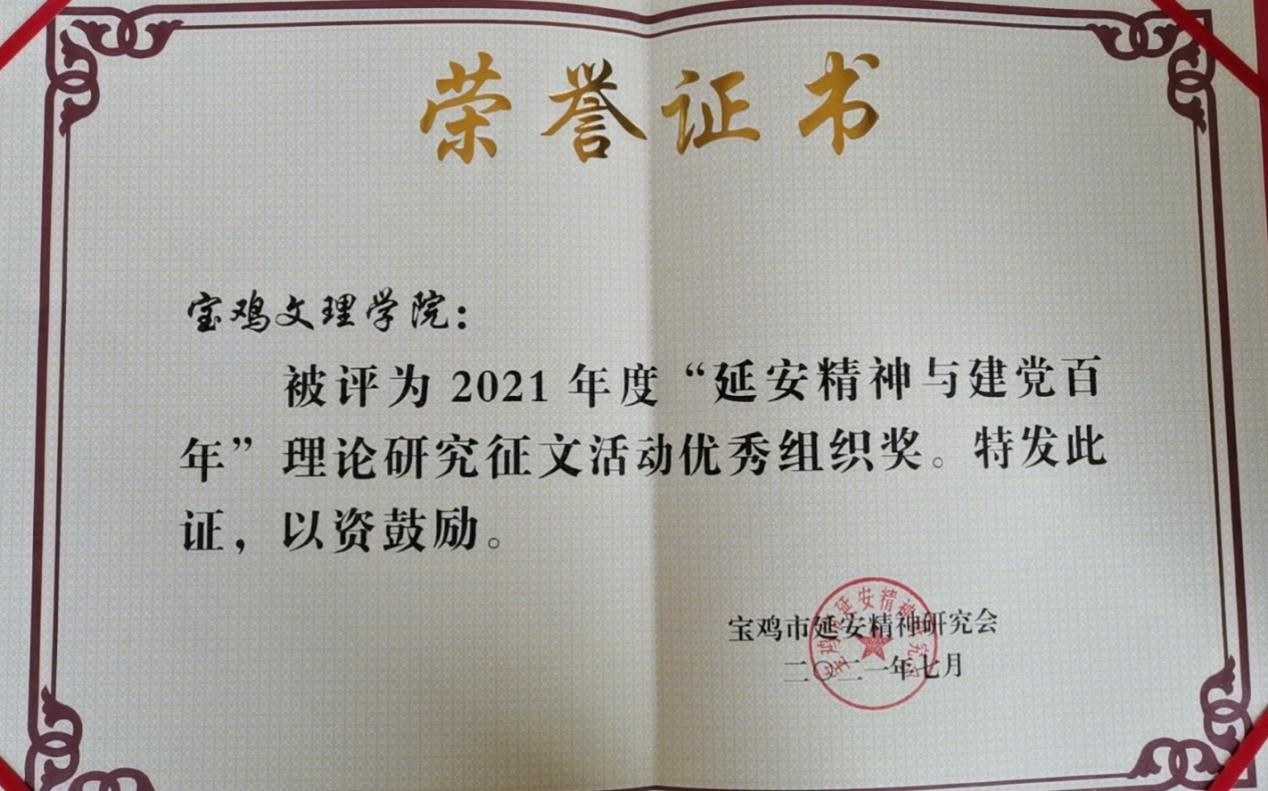 荣誉证书
宝鸡文理学院：
被评为 2021 年度“延安精神与建党百
年”理论研究征文活动优秀组织奖。特发此
证，以资鼓励。
宝鸡市延安精神研究会
二〇二一年七月
宝鸡市延安精神研究会